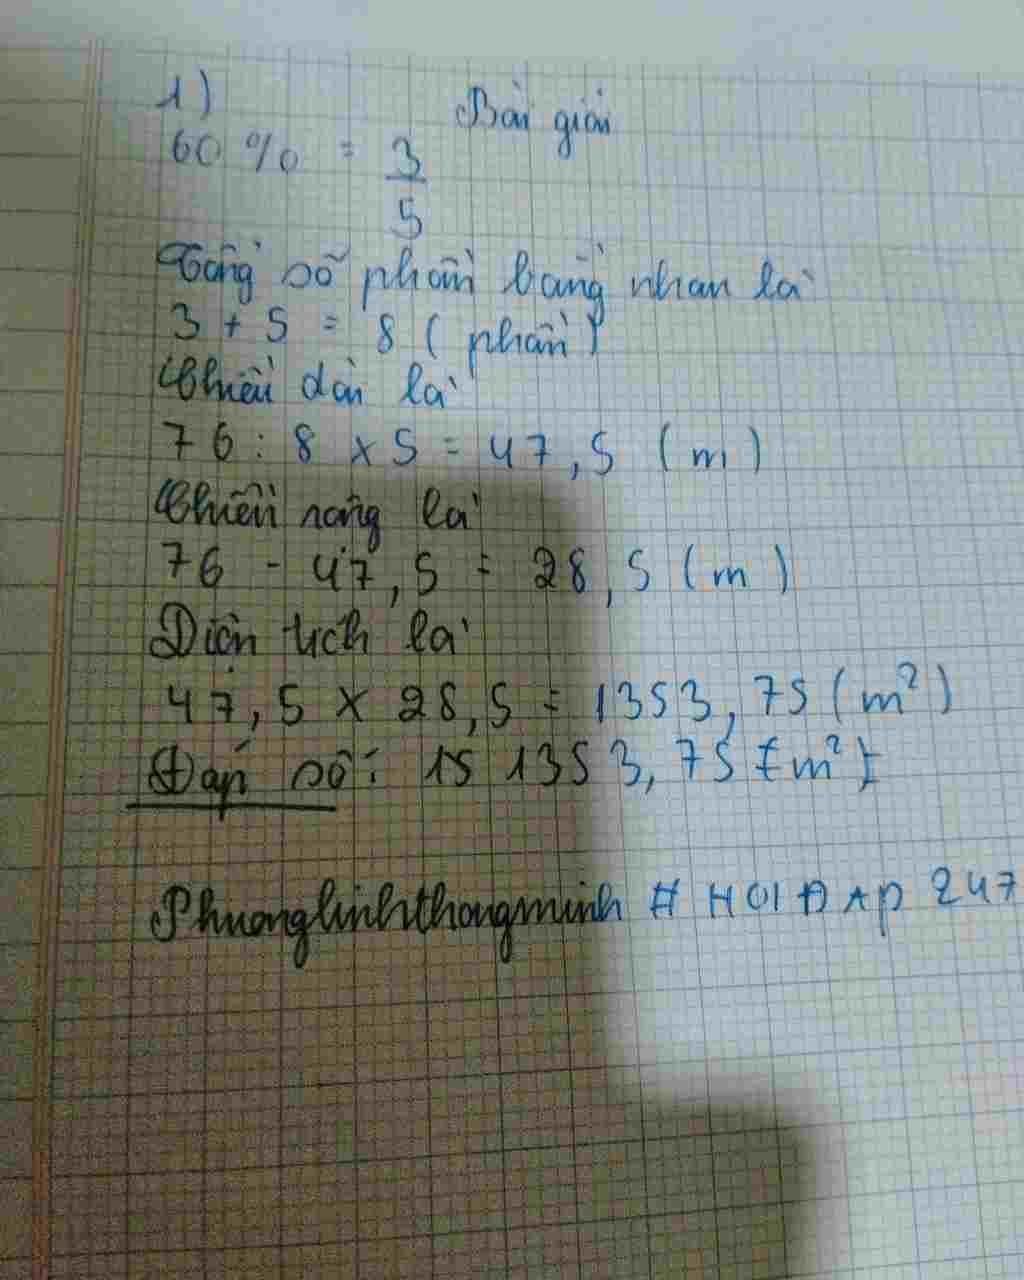 1) Bài giải
60% = 3/5
Tổng số phần bằng nhau là
3 + 5 = 8 (phần)
Chiều dài là
76 : 8 x 5 = 47,5 (m)
Chiều rộng là
76 - 47,5 = 28,5 (m)
Diện tích là
47,5 x 28,5 = 1353,75 (m²)
Đáp số: 15 1353,75 {m²}
Phuonglinhthongminh # HOIDAP247